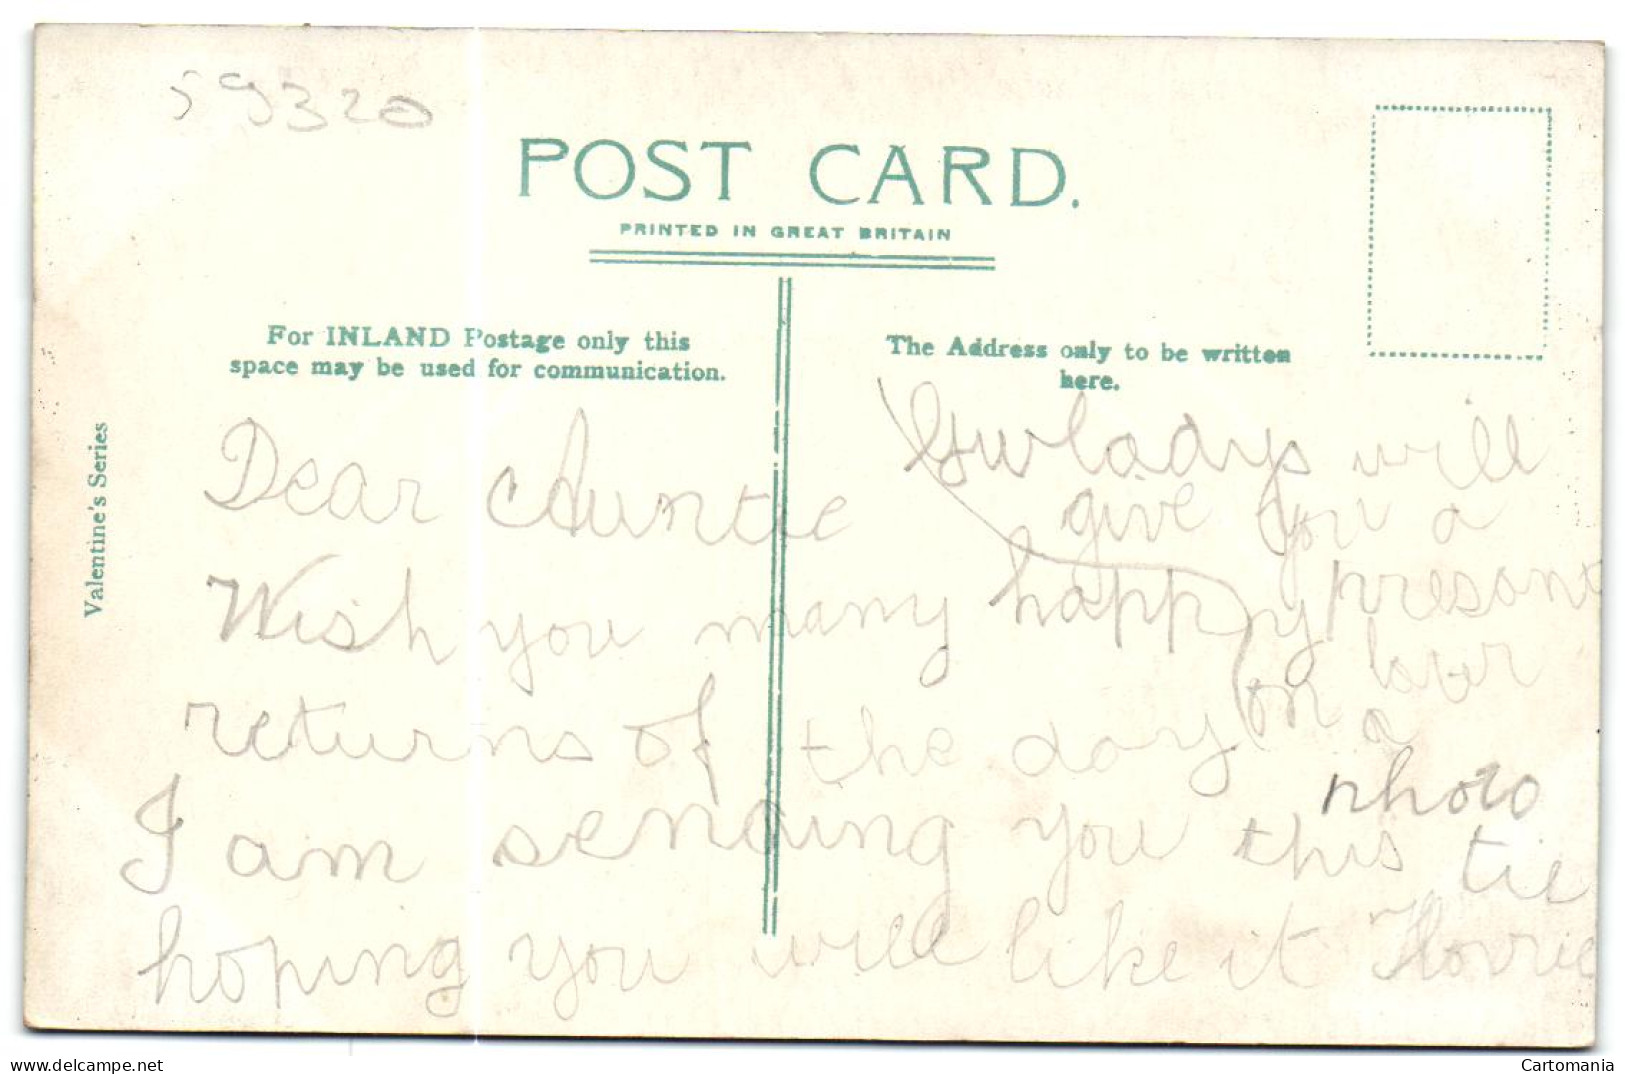 59320
POST CARD.
PRINTED IN GREAT BRITAIN
For INLAND Postage only this
space may be used for communication.
The Address only to be written
here.
Valentine's Series
Dear Auntie
Wish you many happy
returns of the day
I am sending you this tie
hoping you will like it
Gwladys will
give you a
presant
on
a
photo
delcampe.net
Cartomania